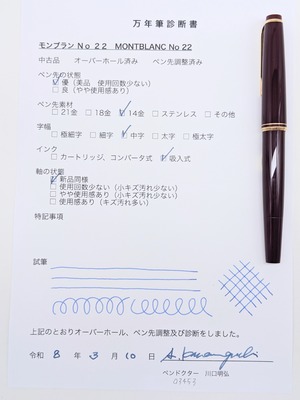 万年筆診断書
モンブラン No 22 MONTBLANC No 22
中古品 オーバーホール済み ペン先調整済み
ペン先の状態
☑ 優(美品 使用回数少ない)
□ 良(やや使用感あり)
ペン先素材
□ 21金 □ 18金 ☑ 14金 □ ステンレス □ その他
字幅
□ 極細字 □ 細字 ☑ 中字 □ 太字 □ 極太字
インク
□ カートリッジ、コンバータ式 ☑ 吸入式
軸の状態
☑ 新品同様
□ 使用回数少ない(小キズ汚れ少ない)
□ やや使用感あり(小キズ汚れ少ない)
□ 使用感あり(キズ汚れ多い)
特記事項
試筆
上記のとおりオーバーホール、ペン先調整及び診断をしました。
令和 8 年 3 月 10 日
ペンドクター 川口明弘